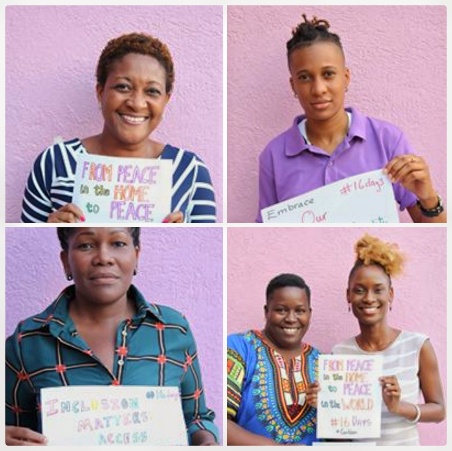 FROM PEACE
in the HOME
to PEACE
#16days
Embrace
Our
INCLUSION
MATTERS
ACCESS
FROM PEACE
in the HOME
to PEACE
in the WORLD
#16 DAYS